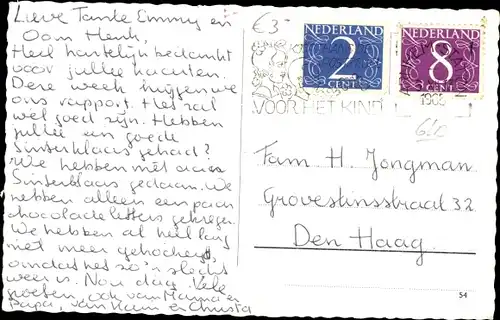 Lieve Tante Emmy en
Oom Henk,
Heel hartelijk bedankt
voor jullie kaarten.
Deze week krijgen we
ons rapport. Het zal
wel goed zijn. Hebben
jullie een goede
Sinterklaas gehad?
We hebben niet aan
Sinterklaas gedaan. We
hebben alleen een paar
chocolade letters gekregen.
We hebben al heel lang
niet meer gehockeyd,
omdat het zo'n slecht
weer is. Nou dag. Vele
groeten ook van Mama en
Papa, van en Christa
€3-
NEDERLAND
2
CENT
NEDERLAND
8
CENT
VOOR HET KIND
1965
Fam H. Jongman
Grovestinsstraat 32
Den Haag.
54